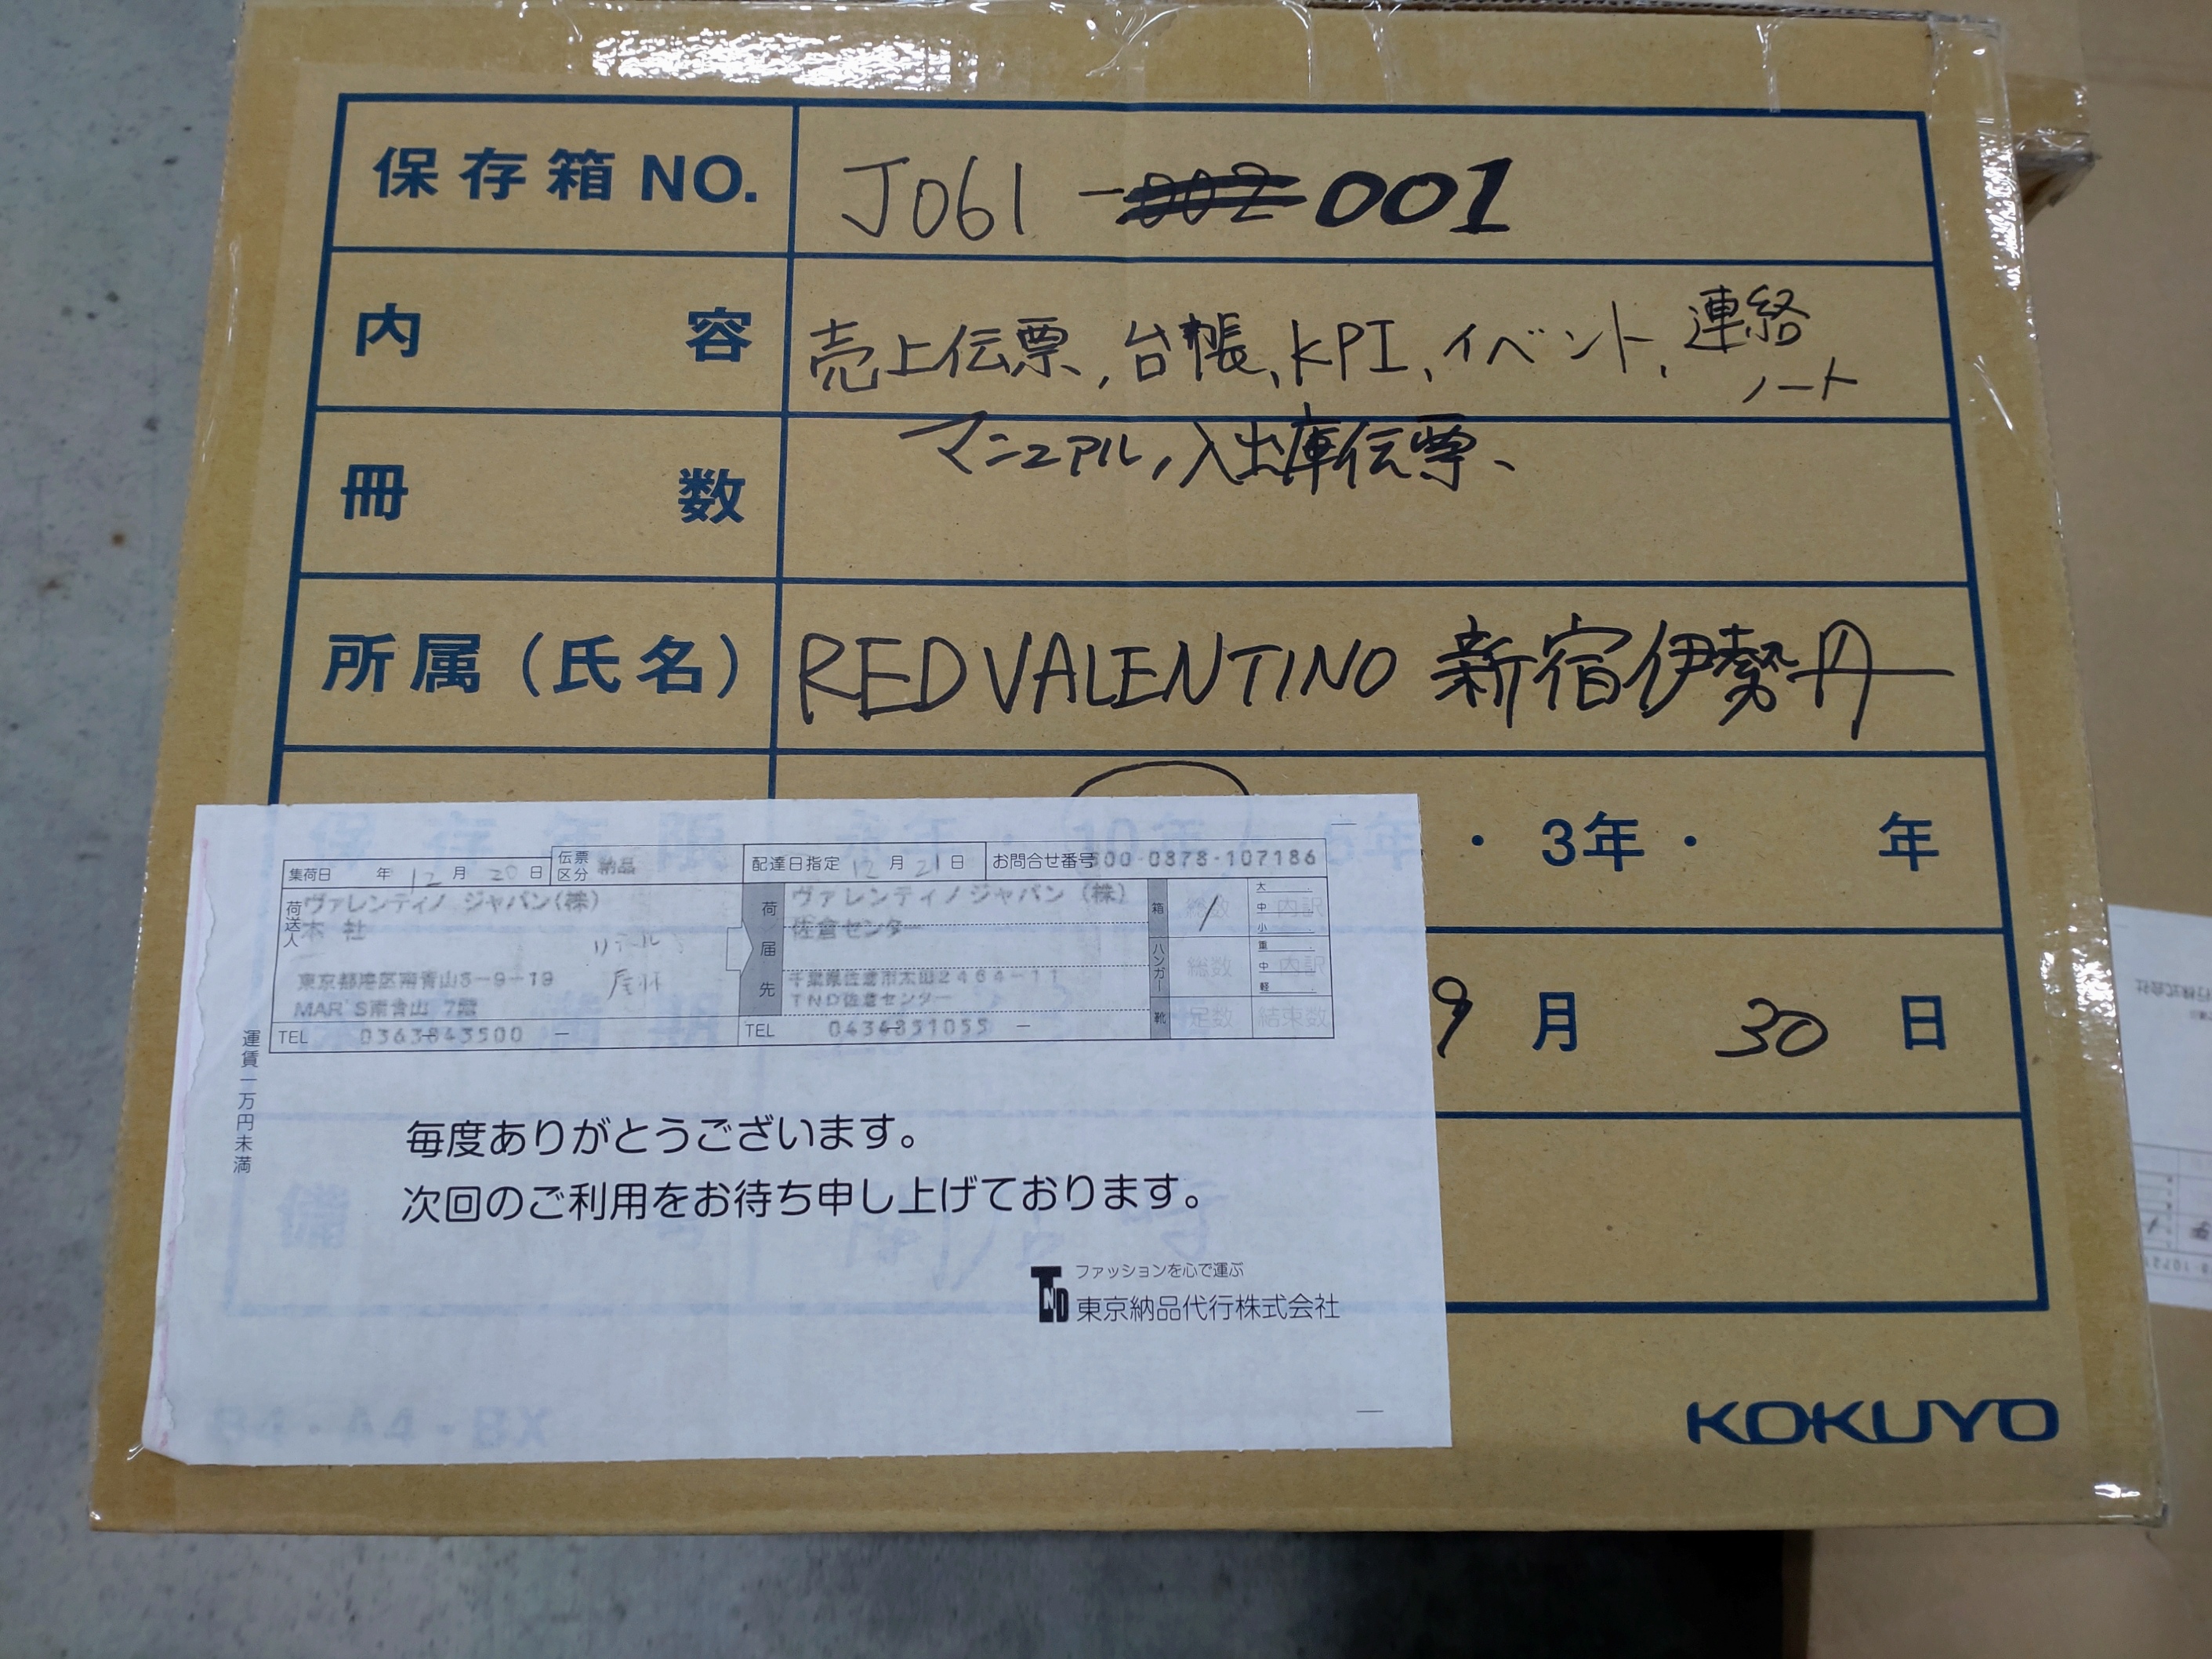 保存箱 NO. J061 -002 001
内容 売上伝票, 台帳, KPI, イベント, 連絡
ノート
冊数 マニュアル, 入出庫伝票、
所属(氏名) REDVALENTINO 新宿伊勢丹
保存年限 永年・10年・5年・3年・ 年
9月 30日
備
集荷日 年 12月 20日 伝票区分 納品 配達日指定 12月 21日 お問合せ番号 500-0378-107186
荷送人 ヴァレンティノ ジャパン(株)
本社 リテール
東京都港区南青山5-9-19
MAR'S南青山 7階
TEL 0363843500 -
荷届先 ヴァレンティノジャパン (株)
佐倉センター
千葉県佐倉市太田2464-11
TND佐倉センター
TEL 0434851055 -
箱 総数 1 大 中 小 内訳
ハンガー 総数 重 中 軽 内訳
靴 足数 結束数
運賃一万円未満
毎度ありがとうございます。
次回のご利用をお待ち申し上げております。
TND ファッションを心で運ぶ
東京納品代行株式会社
B4・A4・BX
KOKUYO